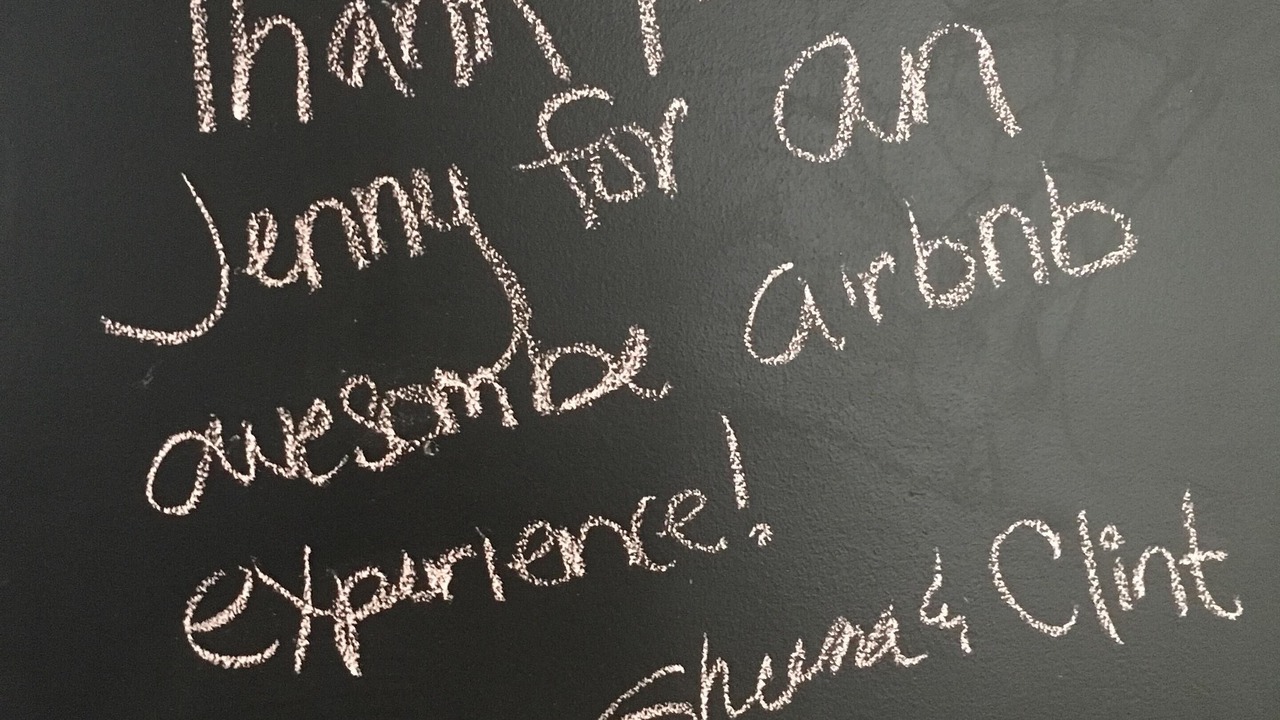 Thank
Jenny for an
awesome airbnb
experience!
& Clint